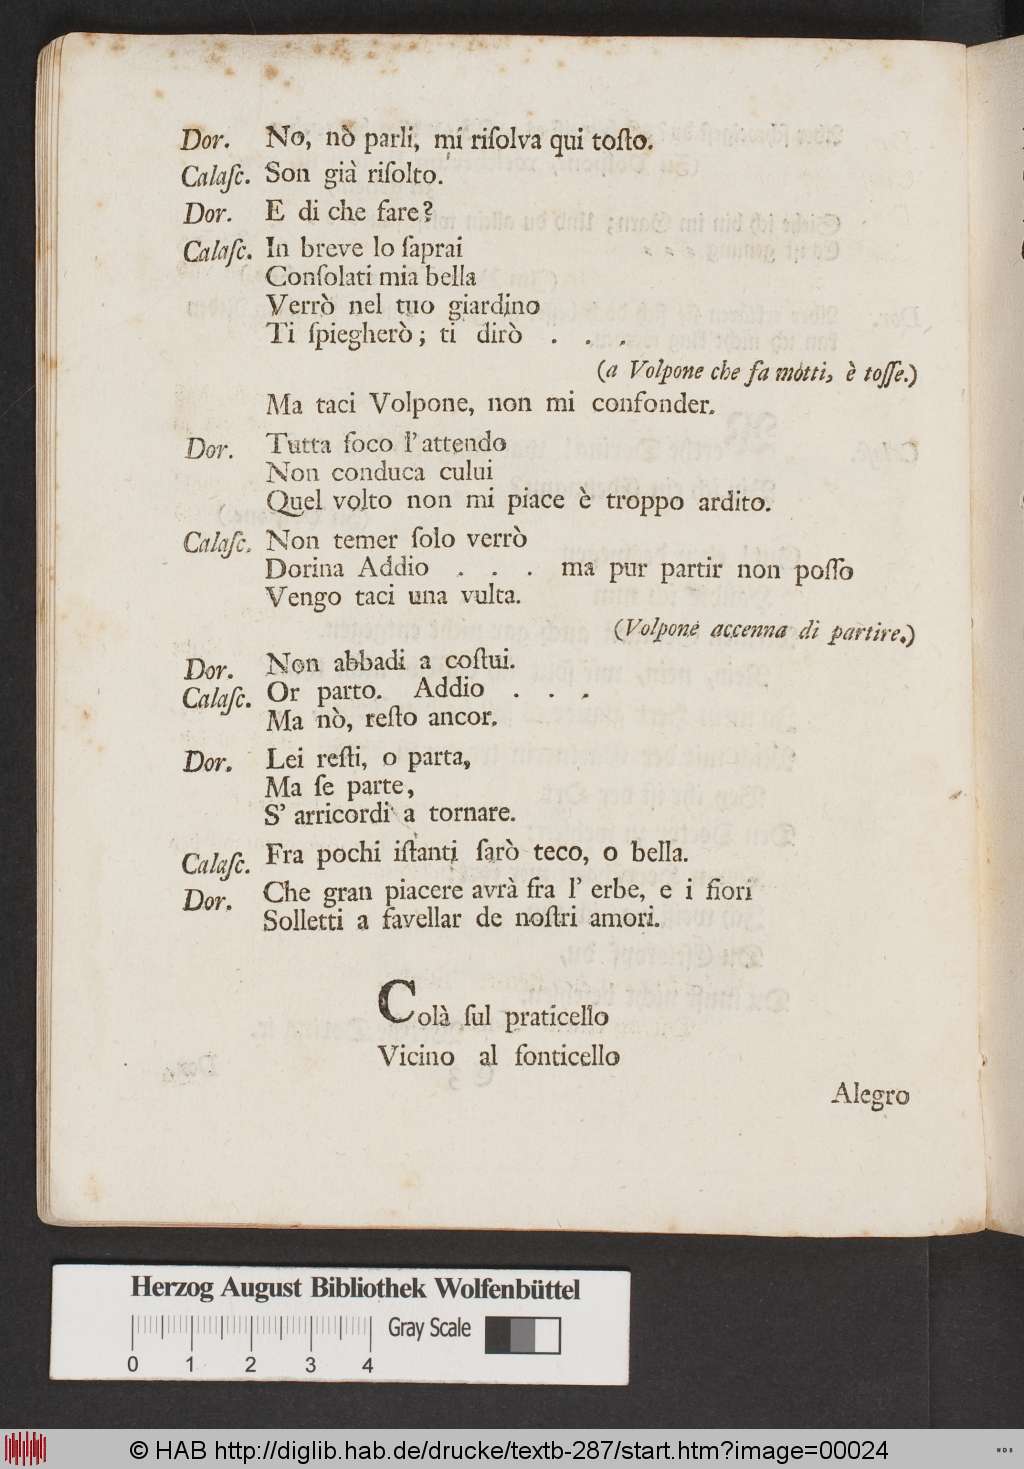 Dor. No, nò parli, mi riſolva qui toſto.
Calaſc. Son già riſolto.
Dor. E di che fare?
Calaſc. In breve lo ſaprai
Conſolati mia bella
Verrò nel tuo giardino
Ti ſpiegherò; ti dirò . . .
(a Volpone che fa motti, è toſſe.)
Ma taci Volpone, non mi confonder.
Dor. Tutta foco l'attendo
Non conduca cului
Quel volto non mi piace è troppo ardito.
Calaſc. Non temer ſolo verrò
Dorina Addio . . . ma pur partir non poſſo
Vengo taci una vulta.
(Volpone accenna di partire.)
Dor. Non abbadi a coſtui.
Calaſc. Or parto. Addio . . .
Ma nò, reſto ancor.
Dor. Lei reſti, o parta,
Ma ſe parte,
S' arricordi a tornare.
Calaſc. Fra pochi iſtanti ſarò teco, o bella.
Dor. Che gran piacere avrà fra l' erbe, e i fiori
Solletti a favellar de noſtri amori.
Colà ſul praticello
Vicino al fonticello
Alegro
Herzog August Bibliothek Wolfenbüttel
Gray Scale
0 1 2 3 4
© HAB http://diglib.hab.de/drucke/textb-287/start.htm?image=00024